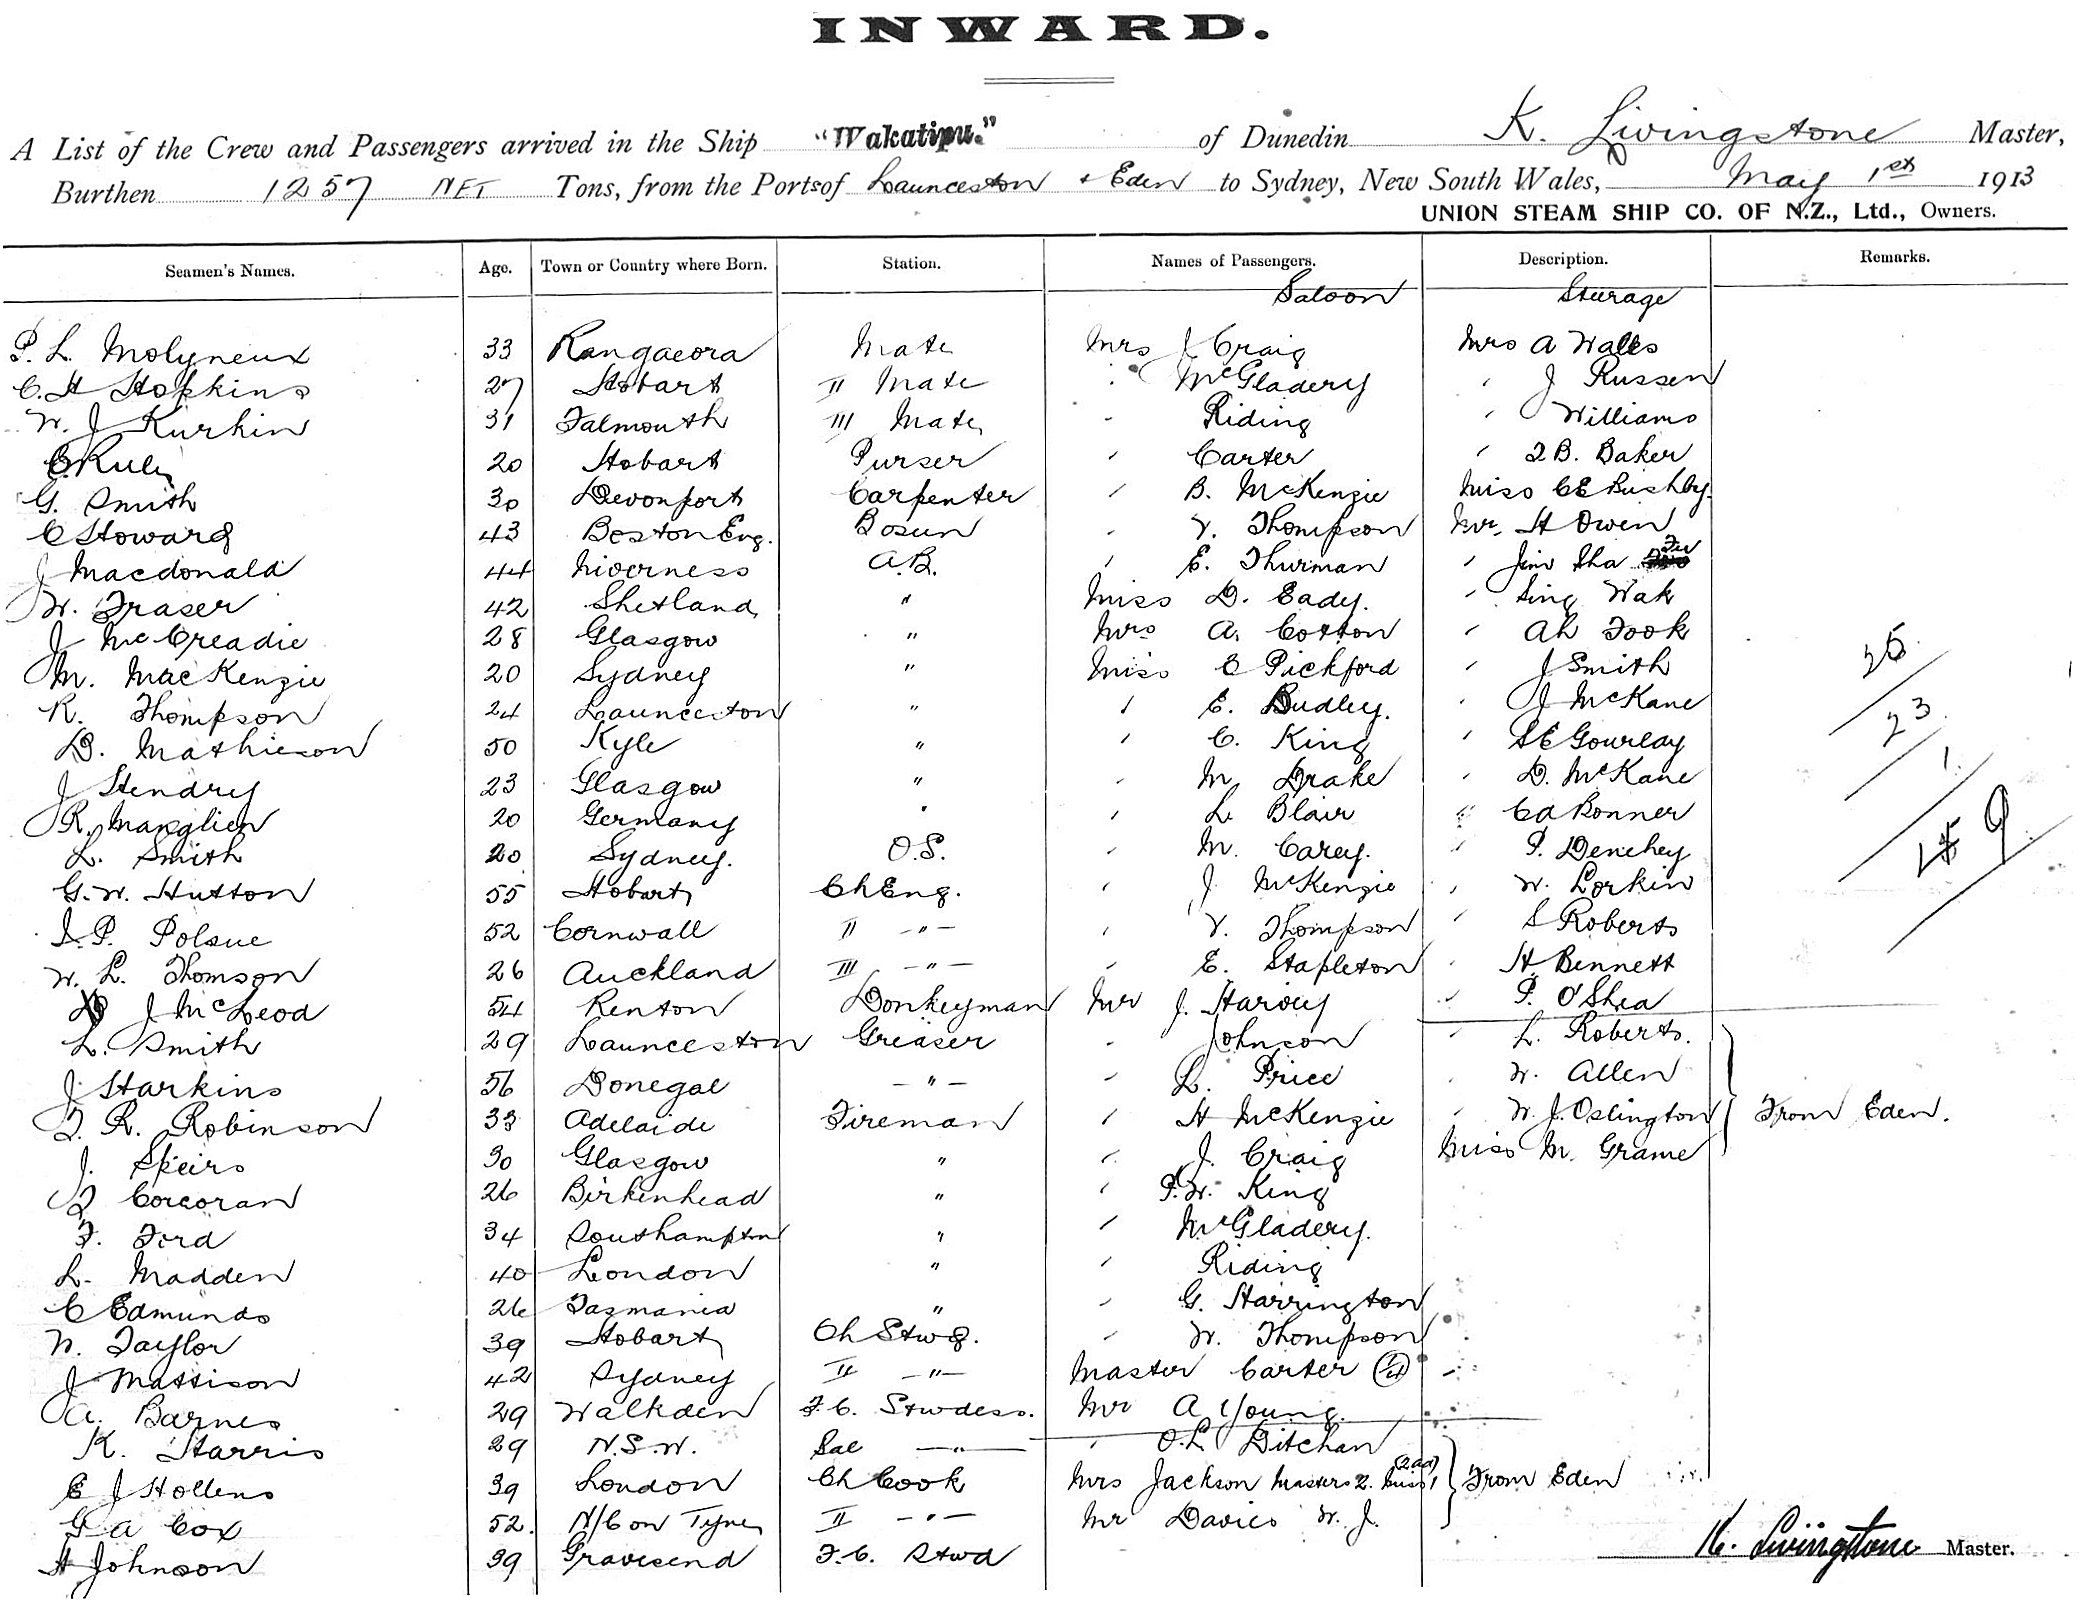 INWARD.
A List of the Crew and Passengers arrived in the Ship "Wakatipu." of Dunedin K. Livingstone Master,
Burthen 1257 NET Tons, from the Ports of Launceston + Eden to Sydney, New South Wales, May 1st 1913
UNION STEAM SHIP CO. OF N.Z., Ltd., Owners.
Seamen's Names. Age. Town or Country where Born. Station. Names of Passengers. Description. Remarks.
Saloon Steurage
P. L. Molyneux 33 Rangaeora Mate Mrs J Craig Mrs A Walls
C. H Hopkins 27 Hobart II Mate " McGladery " J Russen
W. J Kurkin 31 Falmouth III Mate " Riding " Williams
20 Hobart Purser " Carter " B. Baker
G. Smith 30 Devonport Carpenter " B. McKenzie Miss C E Rushby
C Howard 43 Boston Eng. Bosun " V. Thompson Mr. H Owen
J Macdonald 44 Inverness A.B. " E. Thurman " Jim Sha
W. Fraser 42 Shetland " Miss D. Eady. " Sing Wak
J McCreadie 28 Glasgow " Mrs A. Cotton " Ah Fook
M. MacKenzie 20 Sydney " Miss E Pickford " J Smith
R. Thompson 24 Launceston " " E. Dudley. " J McKane
D. Mathieson 50 Kyle " " C. King " S E Gourlay
J Hendry 23 Glasgow " " M. Drake " D. McKane
R. 20 Germany " " L. Blair " Ed Bonner
L. Smith 20 Sydney. O.S. " M. Carey. " P. Denehey
G. W. Hutton 55 Hobart Ch Eng. " J McKenzie " W. Lorkin
J. P. Polsue 52 Cornwall II -"- " V. Thompson " S Roberts
W. L. Thomson 26 Auckland III -"- " E. Stapleton " H. Bennett
J McLeod 54 Renton Donkeyman Mr J. Harvey " P. O'Shea
L. Smith 29 Launceston Greaser " Johnson " L. Roberts.
J Harkins 56 Donegal -"- " L. Price " W. Allen
T. R. Robinson 33 Adelaide Fireman " H McKenzie " W. J. Oslington From Eden.
J. Speirs 30 Glasgow " " J. Craig Miss M. Grame
J Corcoran 26 Birkenhead " " P. W. King
F. Ford 34 Southampton " " McGladery.
L. Madden 40 London " " Riding
C Edmunds 26 Tasmania " " G. Harrington
W. Taylor 39 Hobart Ch Stwd. " W. Thompson
J Mattison 42 Sydney II -"- Master Carter
A. Barnes 29 Walkden F.C. Stwdess. Mr A Young.
K. Harris 29 N.S.W. Sal -"- " O. L. Ditchan
E J Hollens 39 London Ch Cook Mrs Jackson Masters 2. Miss 1 From Eden
G A Cox 52. N/C on Tyne II -"- Mr Davies W. J.
H Johnson 39 Gravesend F.C. Stwd
25
23
1
9
K. Livingstone Master.